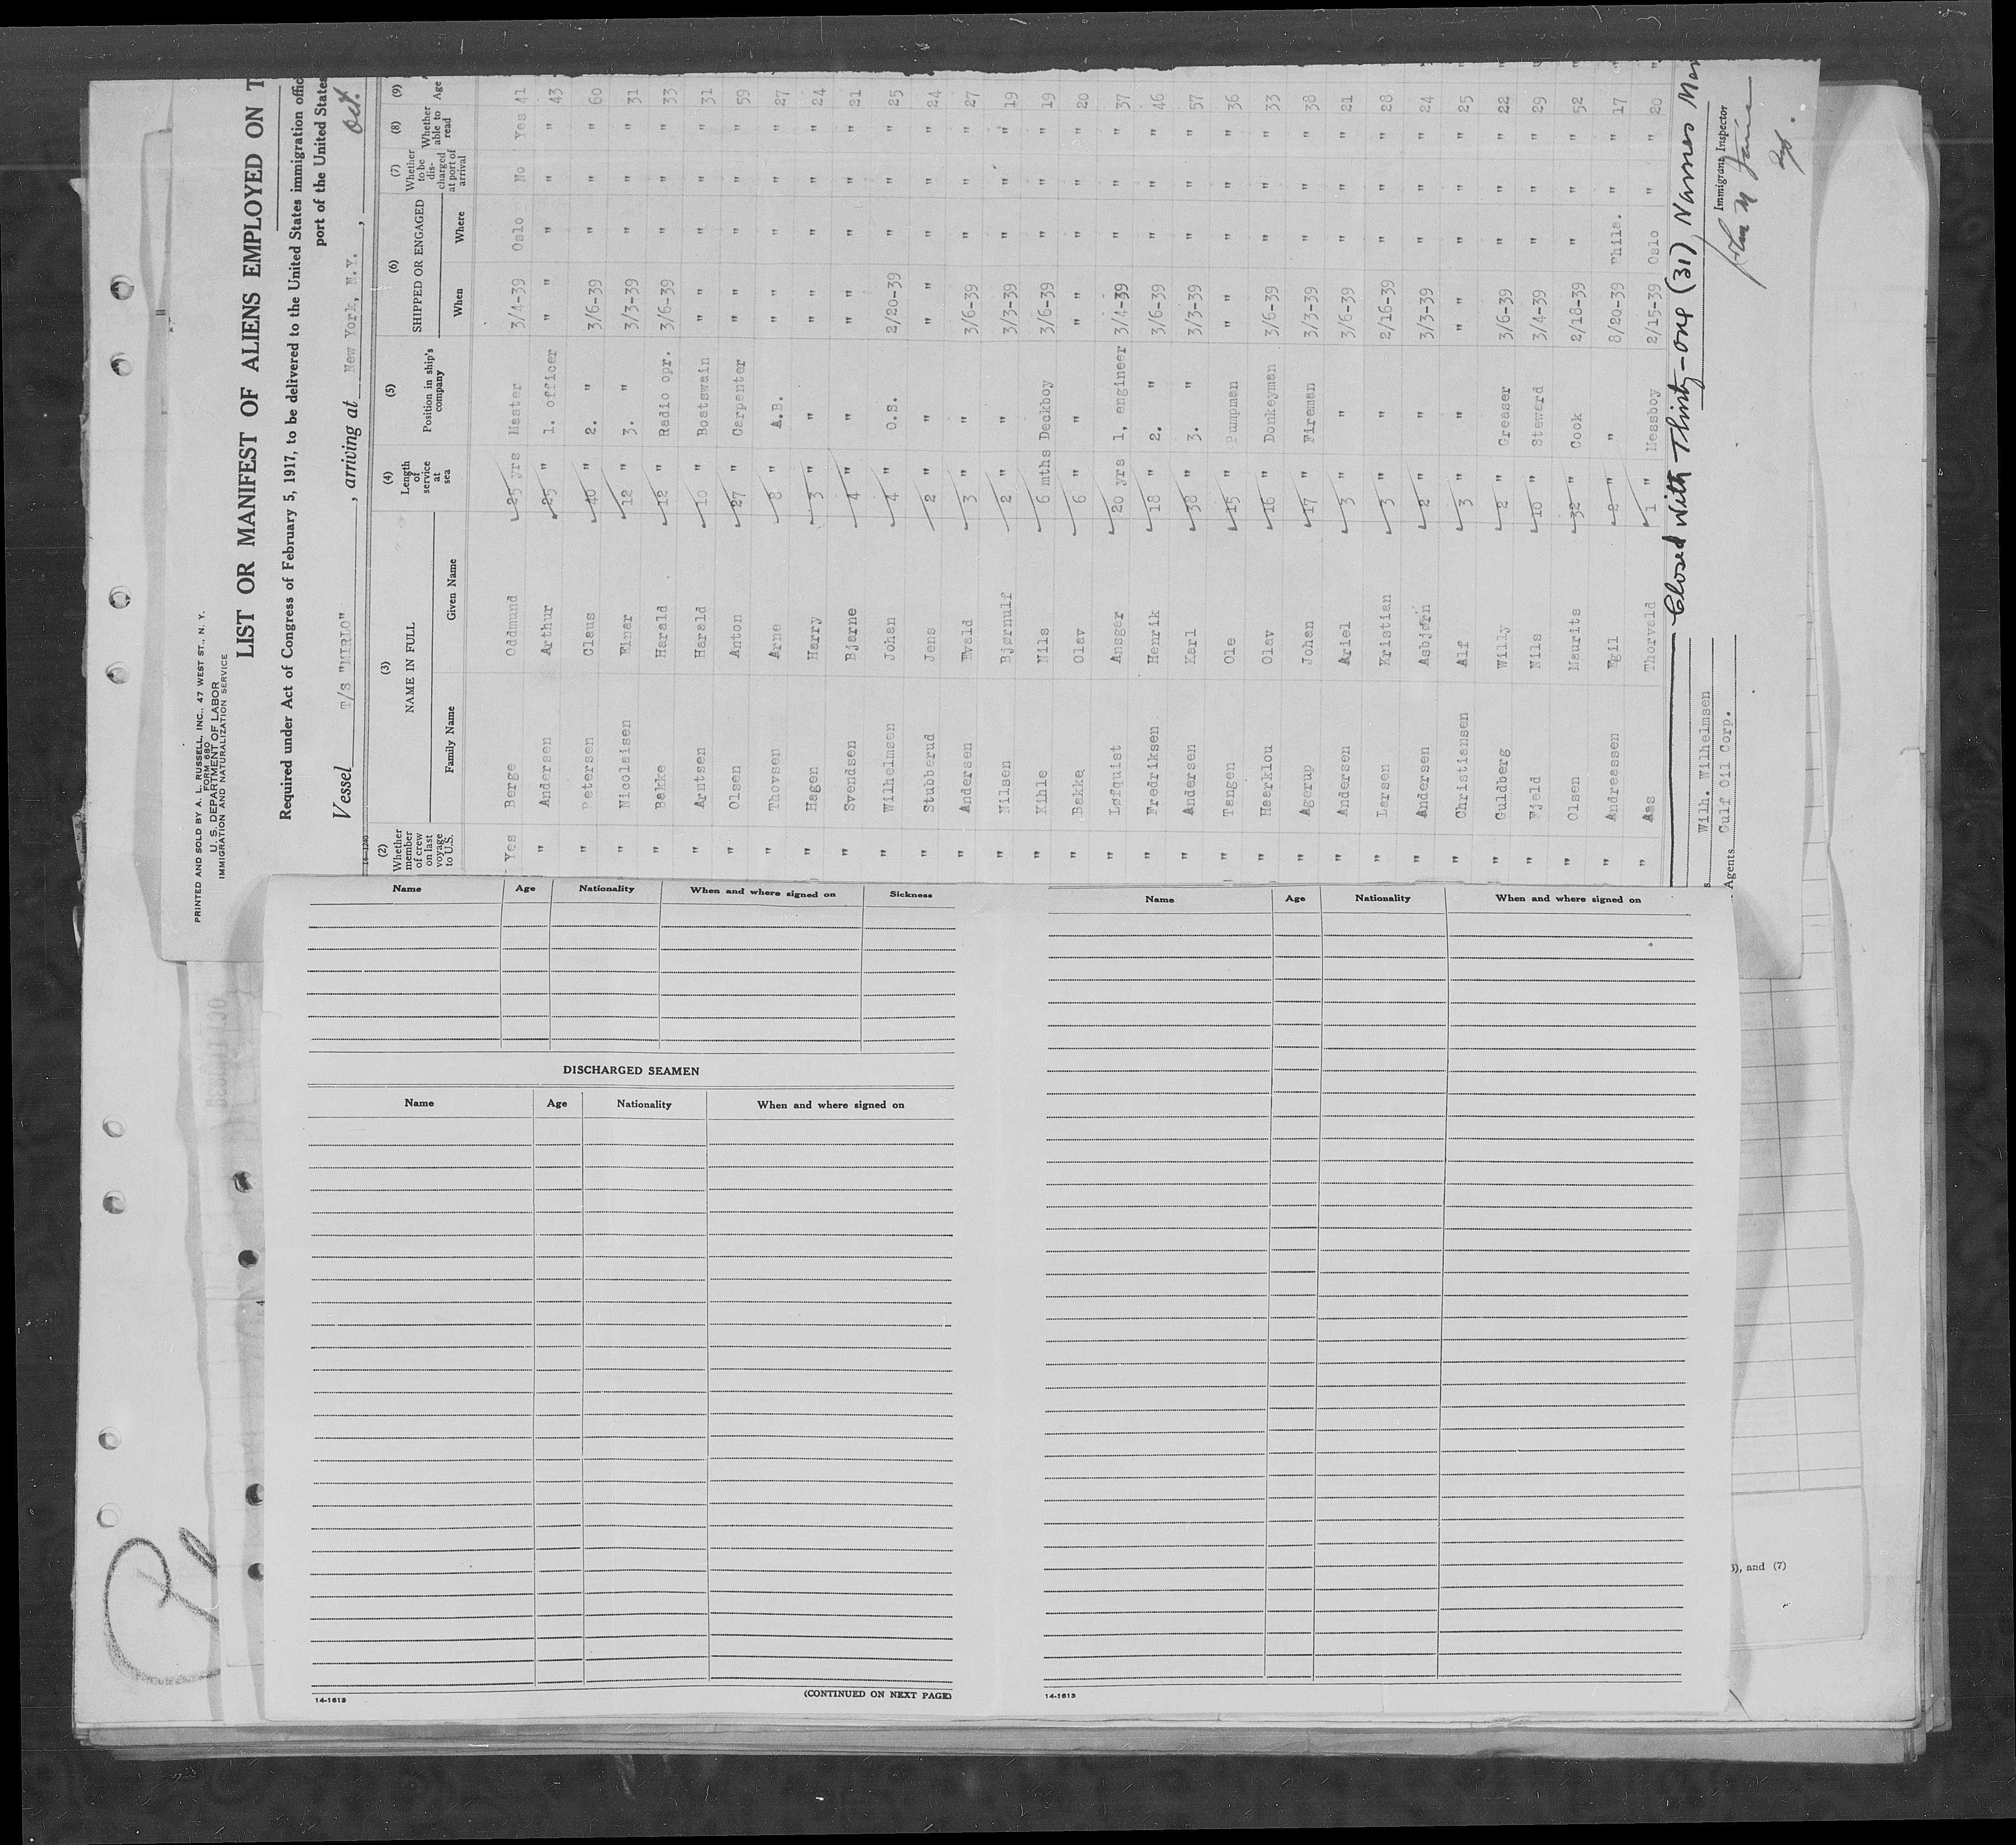 PRINTED AND SOLD BY A. L. RUSSELL, INC., 47 WEST ST., N. Y.
FORM 680
U. S. DEPARTMENT OF LABOR
IMMIGRATION AND NATURALIZATION SERVICE
LIST OR MANIFEST OF ALIENS EMPLOYED ON T
Required under Act of Congress of February 5, 1917, to be delivered to the United States immigration offic
port of the United States
Vessel T/S "MIRLO", arriving at New York, N.Y., Oct.
14-1240
(2) Whether member of crew on last voyage to U.S. (3) NAME IN FULL Family Name Given Name (4) Length of service at sea (5) Position in ship's company (6) SHIPPED OR ENGAGED When Where (7) Whether to be discharged at port of arrival (8) Whether able to read (9) Age
Yes Berge Oddmund 25 yrs Master 3/4-39 Oslo No Yes 41
" Andersen Arthur 25 " 1. officer " " " " 43
" Petersen Claus 40 " 2. " 3/6-39 " " " 60
" Nicolaisen Einar 12 " 3. " 3/3-39 " " " 31
" Bakke Harald 12 " Radio opr. 3/6-39 " " " 33
" Arntsen Harald 10 " Boatswain " " " " 31
" Olsen Anton 27 " Carpenter " " " " 59
" Thovsen Arne 8 " A.B. " " " " 27
" Hagen Harry 3 " " " " " " 24
" Svendsen Bjarne 4 " " " " " " 21
" Wilhelmsen Johan 4 " O.S. 2/20-39 " " " 25
" Stubberud Jens 2 " " " " " " 24
" Andersen Evald 3 " " 3/6-39 " " " 27
" Nilsen Bjørnulf 2 " " 3/3-39 " " " 19
" Kihle Nils 6 mths Deckboy 3/6-39 " " " 19
" Bakke Olav 6 " " " " " " 20
" Løfquist Ansgar 20 yrs 1, engineer 3/4-39 " " " 37
" Fredriksen Henrik 18 " 2. " 3/6-39 " " " 46
" Andersen Karl 38 " 3. " 3/3-39 " " " 57
" Tangen Ole 15 " Pumpman " " " " 36
" Haarklou Olav 16 " Donkeyman 3/6-39 " " " 33
" Agerup Johan 17 " Fireman 3/3-39 " " " 38
" Andersen Ariel 3 " " 3/6-39 " " " 21
" Larsen Kristian 3 " " 2/16-39 " " " 28
" Andersen Asbjørn 2 " " 3/3-39 " " " 24
" Christiansen Alf 3 " " " " " " 25
" Guldberg Willy 2 " Greaser 3/6-39 " " " 22
" Fjeld Nils 10 " Steward 3/4-39 " " " 29
" Olsen Maurits 32 " Cook 2/18-39 " " " 52
" Andreassen Egil 2 " " 8/20-39 Phila. " " 17
" Aas Thorvald 1 " Messboy 2/15-39 Oslo " " 20
Closed With Thirty-one (31) Names
Wilh. Wilhelmsen
Immigrant Inspector
Agents Gulf Oil Corp.
Name Age Nationality When and where signed on Sickness
DISCHARGED SEAMEN
Name Age Nationality When and where signed on
14-1613
(CONTINUED ON NEXT PAGE)
Name Age Nationality When and where signed on
14-1613
), and (7)
4